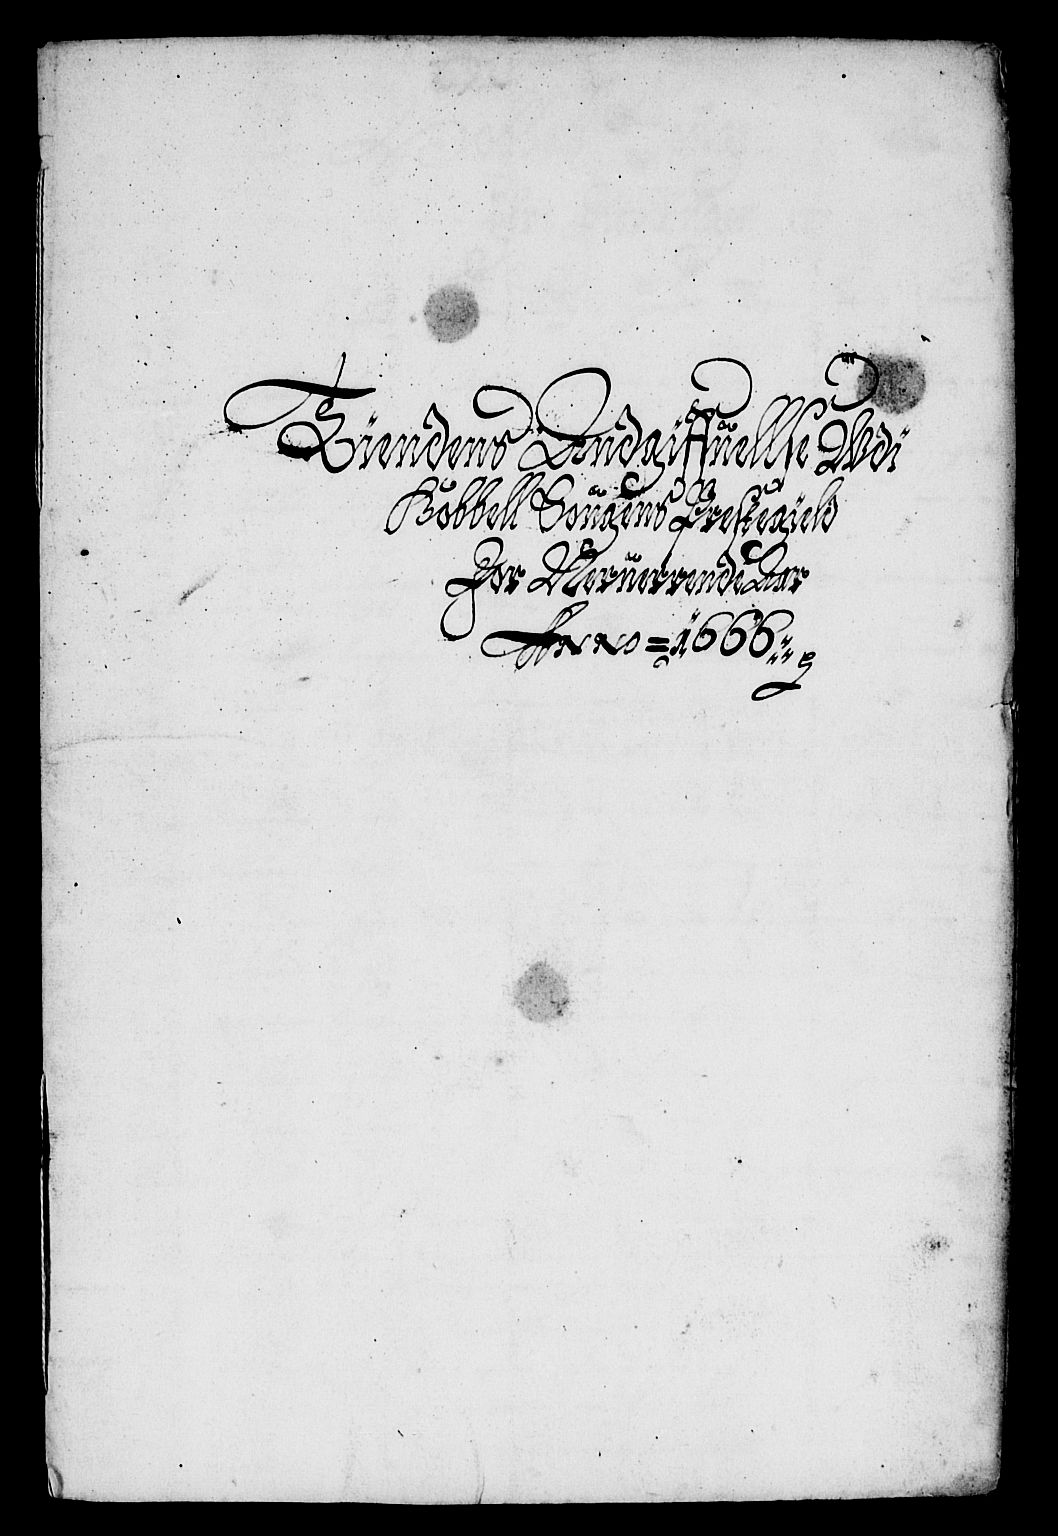 Tiiendens Andgiffuellse Wdi
Kobbell Sougens Prestegield
For Neruerrende Aar
Anno = 1666